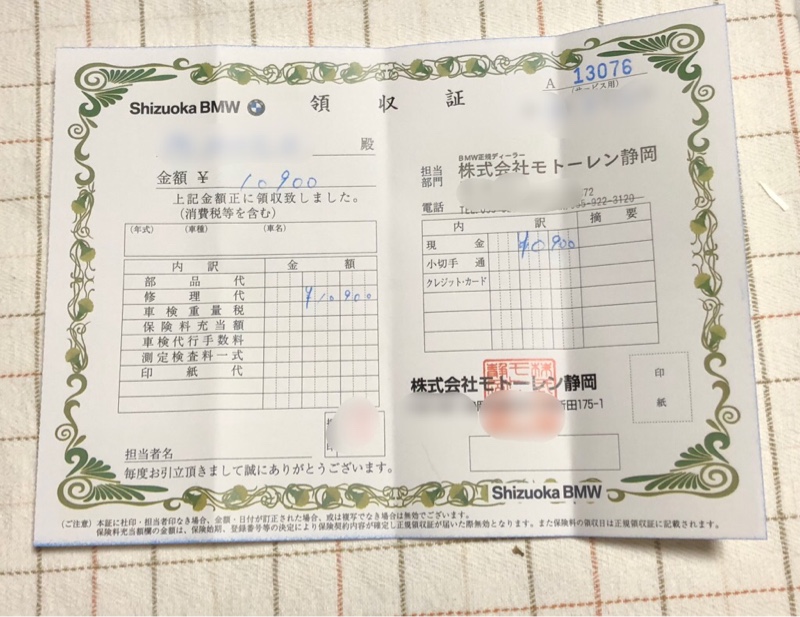 Shizuoka BMW 領収証
A 13076
(サービス用)
殿
金額 ¥ 10900
上記金額正に領収致しました。
(消費税等を含む)
(年式) (車種) (車名)
内訳 金額
部品代
修理代 ¥10900
車検重量税
保険料充当額
車検代行手数料
測定検査料一式
印紙代
担当者名
毎度お引立頂きまして誠にありがとうございます。
BMW正規ディーラー
担当部門 株式会社モトーレン静岡
72
電話 TEL. 922-3120
内訳 摘要
現金 ¥10900
小切手 通
クレジット・カード
株式会社モトーレン静岡
新田175-1
印紙
Shizuoka BMW
(ご注意) 本証に社印・担当者印なき場合、金額・日付が訂正された場合、或は複写でなき場合は無効でございます。
保険料充当額欄の金額は、保険始期、登録番号等の決定により保険契約内容が確定し正規領収証が届いた際無効となります。また保険料の領収日は正規領収証に記載されます。